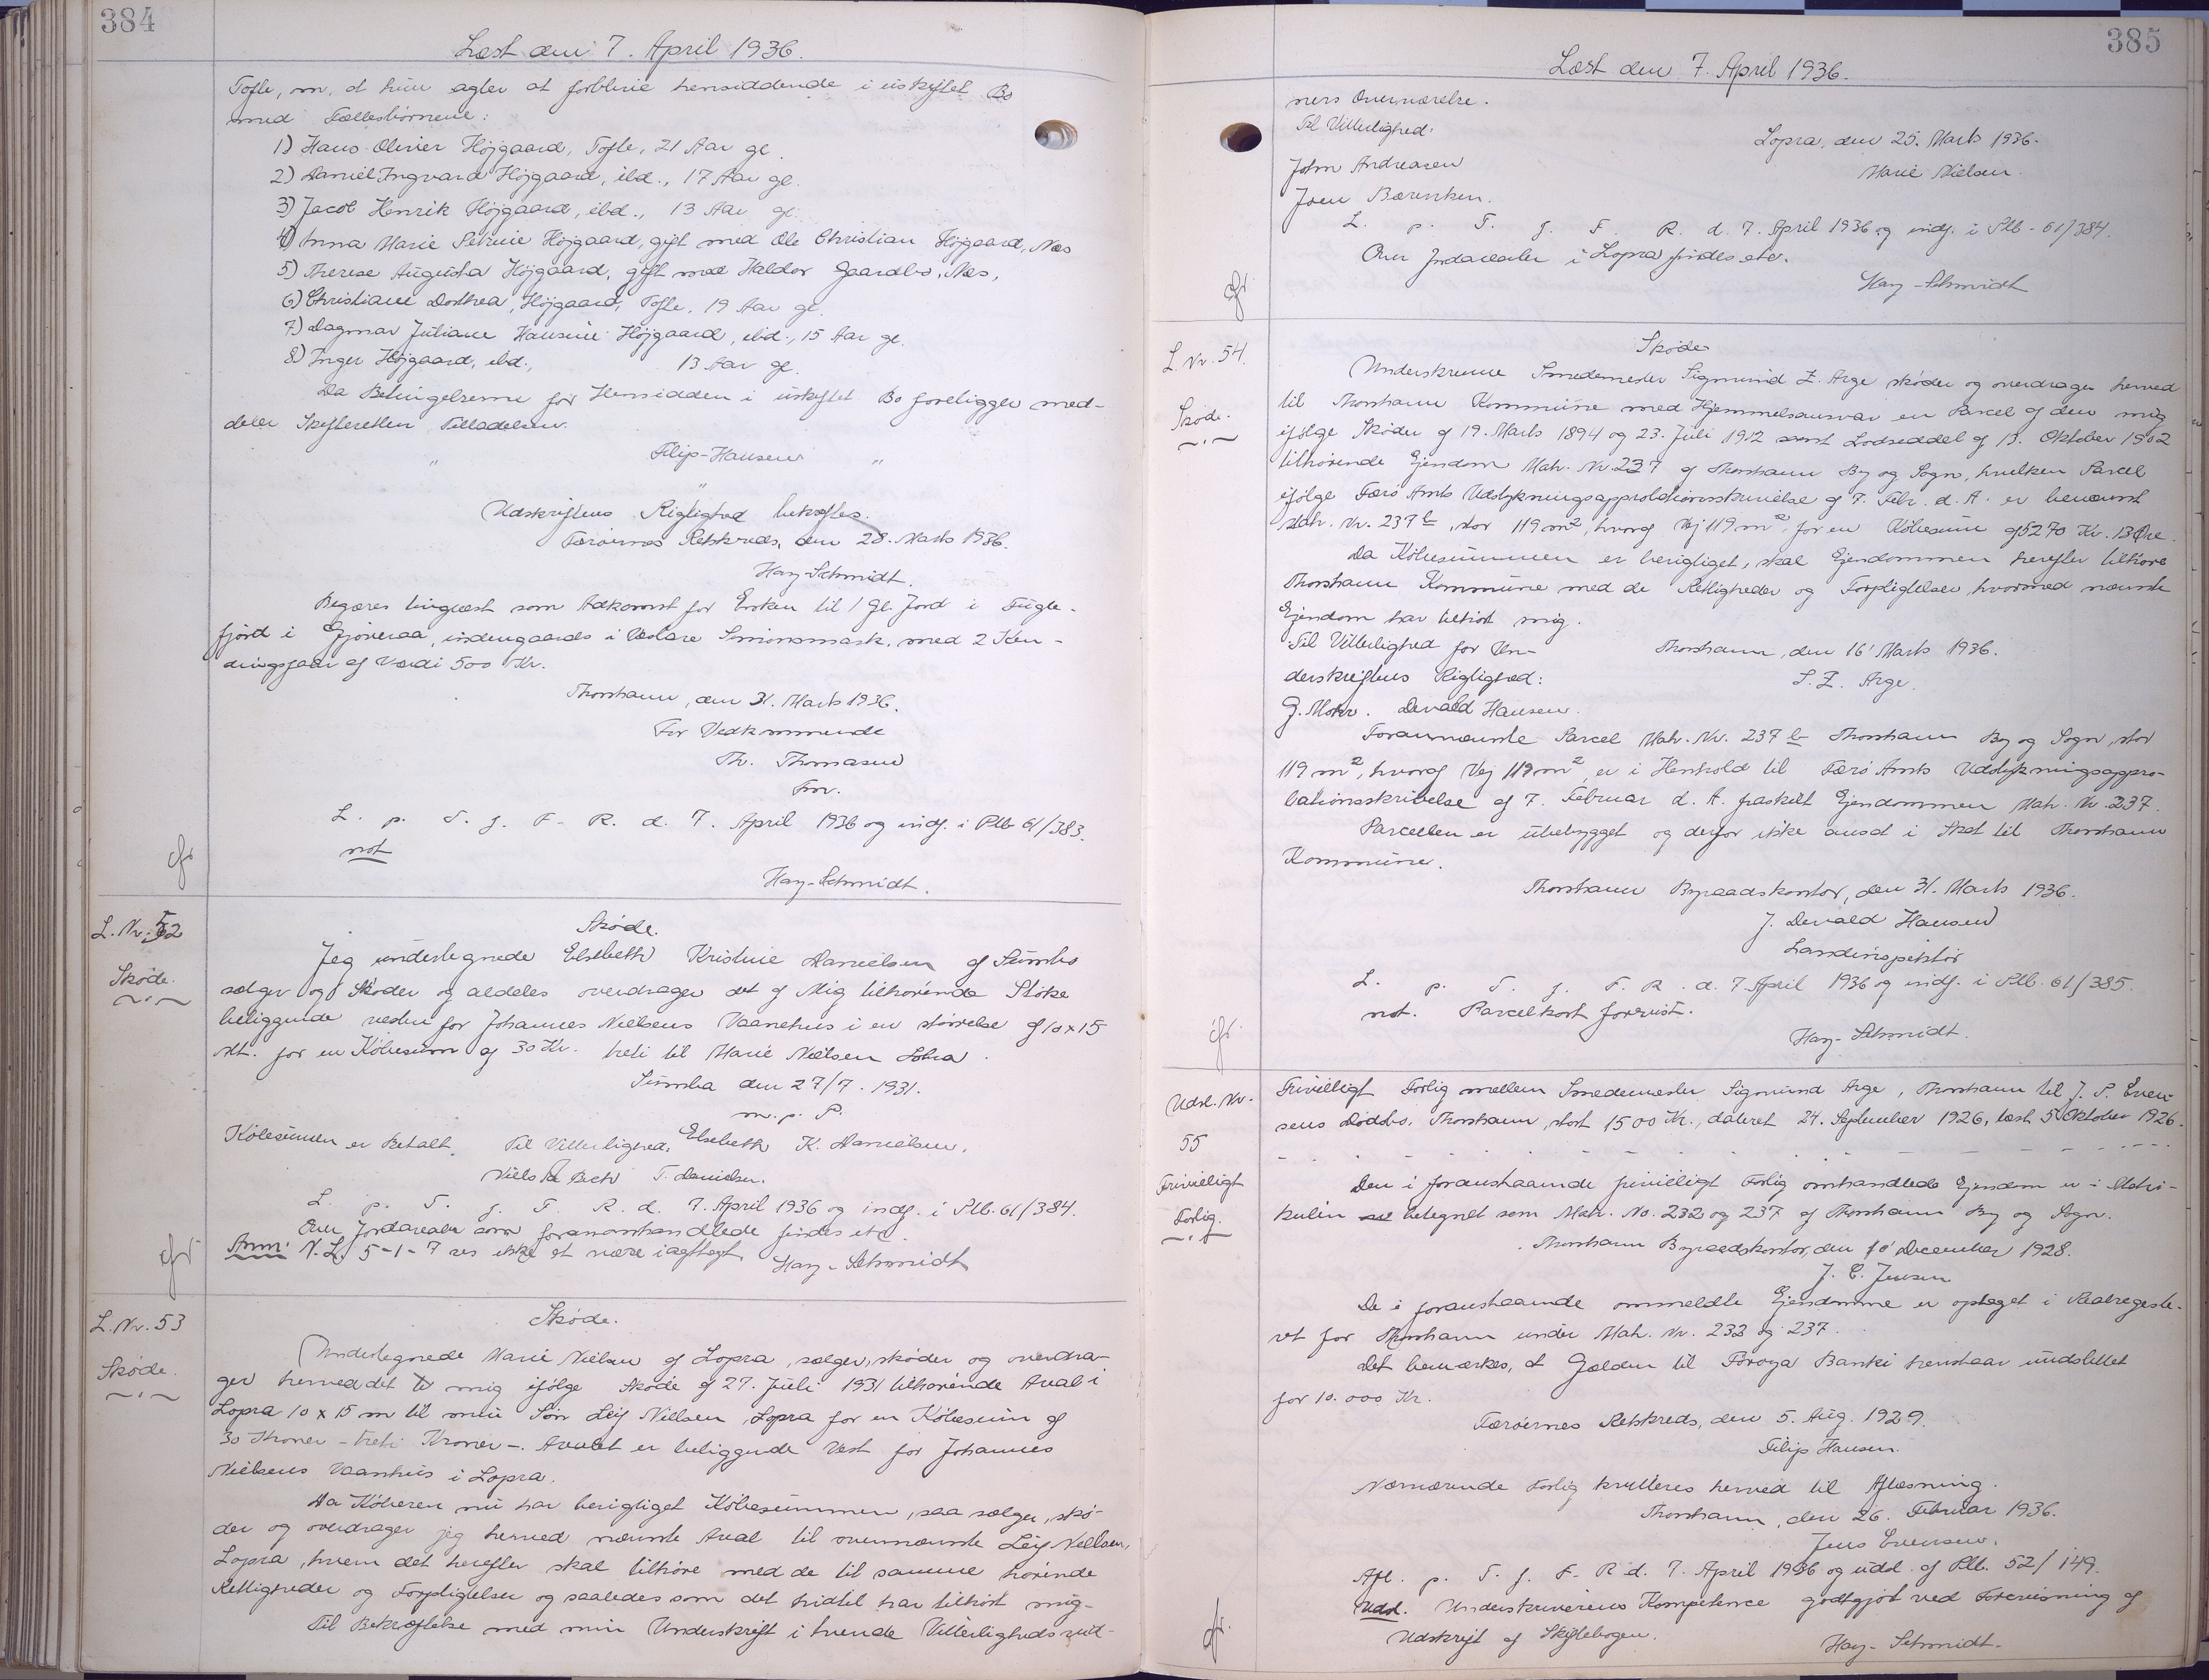 384
Læst den 7. April 1936.
Tofte, om, at hun agter at forblive hensiddende i uskiftet Bo
med Fællesbørnene:
1) Hans Olivier Højgaard, Tofte, 21 Aar gl.
2) Daniel Ingvard Højgaard, ibd., 17 Aar gl.
3) Jacob Henrik Højgaard, ibd., 13 Aar gl.
4) Anna Marie Højgaard, gift med Ole Christian Højgaard, Næs
5) Therese Augusta Højgaard, gift med Haldor Gaardbo, Næs,
6) Christiane Dorthea Højgaard, Tofte, 19 Aar gl.
7) Dagmar Juliane Hansine Højgaard, ibd., 15 Aar gl.
8) Inger Højgaard, ibd., 13 Aar gl.
Da Betingelserne for Hensidden i uskiftet Bo foreligger med-
deler Skifteretten Tilladelsen.
" Filip-Hansen "
"
Udskriftens Rigtighed bekræftes.
Færøernes Retskreds, den 28. Marts 1936.
Hay-Schmidt.
Begæres tinglæst som Adkomst for Enken til 1 Gl. Jord i Fugle-
fjord i Gjóveraa, indengaards i Vestare Simonsmark, med 2 Ken-
dingsfaar af Værdi 500 Kr.
Thorshavn, den 31. Marts 1936.
For Vedkommende
Th. Thomasen
Fm.
L. p. T. f. F. R. d. 7. April 1936 og indf. i Ptb. 61/383.
not
cfr
Hay-Schmidt.
L. Nr. 52
Skøde.
Skøde.
Jeg undertegnede Elsebeth Kristine Danielsen af Sumbø
sælger og Skøder og aldeles overdrager det af Mig tilhørende Støke
beliggende vesten for Johannes Nielsens Vaanehus i en størrelse af 10 x 15
Mt. for en Købesum af 30 Kr. treti til Marie Nielsen Lobra.
Sumba den 27/7. 1931.
m. p. P.
Købesumen er Betalt. Til Vitterlighed, Elsebeth K. Danielsen.
Niels Bech T. Danielsen.
L. p. T. f. F. R. d. 7. April 1936 og indf. i Ptb. 61/384.
Over Jordarealer som foranomhandlede findes etc.
Anm: N. L. 5-1-7 ses ikke at være iagttaget.
cfr
Hay-Schmidt
L. Nr. 53
Skøde.
Skøde.
Undertegnede Marie Nielsen af Lopra, sælger, skøder og overdra-
ger hermed det mig ifølge Skøde af 27. Juli 1931 tilhørende Areal i
Lopra 10 x 15 m til min Søn Leif Nielsen Lopra for en Købesum af
30 Kroner - treti Kroner -. Arealet er beliggende Vest for Johannes
Nielsens Vaanhus i Lopra.
Da Køberen nu har berigtiget Købesummen, saa sælger, skø-
der og overdrager jeg hermed nævnte Areal til ovennævnte Leif Nielsen,
Lopra, hvem det herefter skal tilhøre med de til samme hørende
Rettigheder og Forpligtelser og saaledes som det hidtil har tilhørt mig.
Til Bekræftelse med min Underskrift i tvende Vitterlighedsvid-
385
Læst den 7. April 1936.
ners Overværelse.
Til Vitterlighed:
Lopra, den 25. Marts 1936.
John Andreasen
Marie Nielsen.
Joen Bærentsen.
L. p. T. f. F. R. d. 7. April 1936 og indf. i Ptb. 61/384.
Over Jordarealer i Lopra findes etc.
cfr
Hay-Schmidt
L. Nr. 54.
Skøde.
Skøde
Underskrevne Smedemester Sigmund Z. Arge skøder og overdrager herved
til Thorshavn Kommune med Hjemmelsansvar en Parcel af den mig
ifølge Skøder af 19. Marts 1894 og 23. Juli 1912 samt Lodseddel af 13. Oktober 1902
tilhørende Ejendom Matr. Nr. 237 af Thorshavn By og Sogn, hvilken Parcel
ifølge Færø Amts Udstykningsapprobationsskrivelse af 7. Febr. d. A. er benævnt
Matr. Nr. 237 b, stor 119 m², hvoraf Vej 119 m² for en Købesum af 5270 Kr. 13 Øre.
Da Købesummen er berigtiget, skal Ejendommen herefter tilhøre
Thorshavn Kommune med de Rettigheder og Forpligtelser, hvormed nævnte
Ejendom har tilhørt mig.
Til Vitterlighed for Un-
Thorshavn, den 16' Marts 1936.
derskriftens Rigtighed:
S. Z. Arge.
G. Mohr. Devald Hansen.
Forannævnte Parcel Matr. Nr. 237 b Thorshavn By og Sogn, stor
119 m², hvoraf Vej 119 m², er i Henhold til Færø Amts Udstykningsappro-
bationsskrivelse af 7. Februar d. A. fraskilt Ejendommen Matr. Nr. 237.
Parcellen er ubebygget og derfor ikke ansat i Skat til Thorshavn
Kommune.
Thorshavn Byraadskontor, den 31. Marts 1936.
J. Devald Hansen
Landinspektør
L. p. T. f. F. R. d. 7. April 1936 og indf. i Ptb. 61/385.
not. Parcelkort forevist.
cfr.
Hay-Schmidt.
Udsl. Nr.
55
Frivilligt
Forlig.
Frivilligt Forlig mellem Smedemester Sigmund Arge, Thorshavn til J. P. Even-
sens Dødsbo, Thorshavn, stort 1500 Kr., dateret 24. September 1926, læst 5. Oktober 1926.
Den i foranstaaende frivilligt Forlig omhandlede Ejendom er i Matri-
kulen betegnet som Matr. No. 232 og 237 af Thorshavn By og Sogn.
Thorshavn Byraadskontor, den 10' December 1928.
J. C. Jensen
De i foranstaaende ommeldte Ejendomme er optaget i Realregeste-
ret for Thorshavn under Matr. Nr. 232 og 237.
Det bemærkes, at Gælden til Føroya Banki henstaar uudslettet
for 10.000 Kr.
Færøernes Retskreds, den 5. Aug. 1929.
Filip Hansen.
Nærværende Forlig kvitteres herved til Aflæsning.
Thorshavn, den 26. Februar 1936.
Jens Evensen.
Afl. p. T. f. F. R. d. 7. April 1936 og udsl. af Ptb. 52/149.
Udsl. Underskriverens Kompetence godtgjort ved Forevisning af
Udskrift af Skiftebogen.
cfr.
Hay-Schmidt.